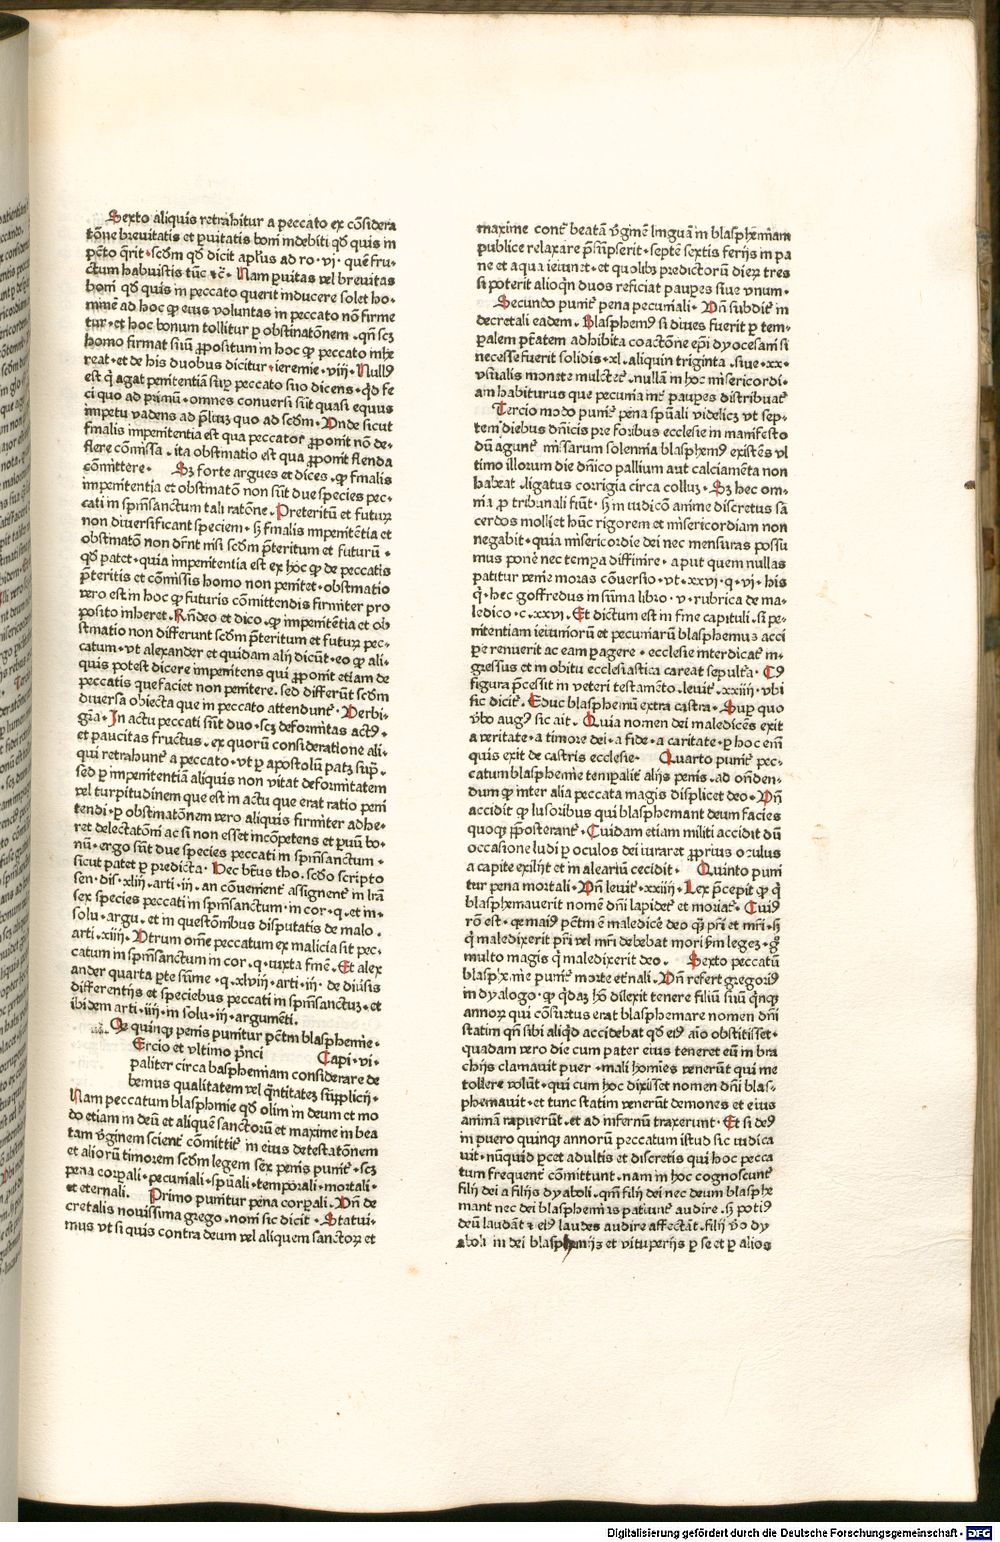 Sexto aliquis retrahitur a peccato ex cōsidera
tōne breuitatis et puitatis boni indebiti qd̄ quis in
pctō q̄rit · scdm qd̄ dicit aplus ad ro · vi · quē fru-
ctum habuistis tūc ⁊c̄ · Nam puitas vel breuitas
boni qd̄ quis in peccato querit inducere solet ho-
minē ad hoc ꝙ eius voluntas in peccato nō firme
tur · et hoc bonum tollitur p obstinatōnem · qn̄ scꝫ
homo firmat suū ꝓpositum in hoc ꝙ peccato inhe
reat · et de his duobus dicitur · ieremie · viij · Nullꝰ
est q̄ agat penitentiā suꝑ peccato suo dicens · qd̄ fe
ci quo ad primū · omnes conuersi sūt quasi equus
impetu vadens ad pliuꝫ quo ad scdm · Unde sicut
finalis impenitentia est qua peccator ꝓponit nō de-
flere cōmissa · ita obstinatio est qua ꝓponit flenda
cōmittere · Sꝫ forte argues et dices · ꝙ finalis
impenitentia et obstinatō non sūt due species pec-
cati in spm̄sanctum tali ratōne · Preteritū et futuꝝ
non diuersificant speciem · sꝫ finalis impenitētia et
obstinatō non dr̄nt nisi scdm p̄teritum et futurū ·
qd̄ patet · quia impenitentia est ex hoc ꝙ de peccatis
p̄teritis et cōmissis homo non penitet · obstinatio
vero est in hoc ꝙ futuris cōmittendis firmiter pro
posito inheret · Rn̄deo et dico · ꝙ impenitētia et ob
stinatio non differunt scdm p̄teritum et futuꝝ pec-
catum · vt alexander et quidam alij dicūt · eo ꝙ ali-
quis potest dicere impenitens qui ꝓponit etiam de
peccatis que faciet non penitere · sed differūt scdm
diuersa obiecta que in peccato attendunt᷑ · Verbi-
grā · In actu peccati sūt duo · scꝫ deformitas actꝰ ·
et paucitas fructus · ex quorū consideratione ali-
qui retrahunt᷑ a peccato · vt p apostolū patꝫ suꝑ ·
sed p impenitentiā aliquis non vitat deformitatem
vel turpitudinem que est in actu que erat ratio peni
tendi · p obstinatōnem vero aliquis firmiter adhe-
ret delectatōni ac si non esset incōpetens et puū bo-
nū · ergo sūt due species peccati in spm̄sanctum ·
sicut patet p predicta · Hec btūs tho · scdo scripto
sen · dis · xliij · arti · iij · an cōuenient᷑ assignent᷑ in lrā
sex species peccati in spm̄sanctum · in cor · q · et in ·
solu · argu · et in questōnibus disputatis de malo ·
arti · xiiij · Utrum om̄e peccatum ex malicia sit pec-
catum in spm̄sanctum in cor · q · iuxta finē · Et alex
ander quarta pte sūme · q · xlviij · arti · iij · de diūsis
differentijs et speciebus peccati in spm̄sanctuꝫ · et
ibidem arti · iiij · in solu · iij · argumēti ·
Qe quinqꝫ penis punitur pctm̄ blasphemie ·
Ercio et vltimo prīnci Capi · vi ·
paliter circa basphemiam considerare de
bemus qualitatem vel q̄ntitateꝫ supplicij ·
Nam peccatum blasphemie qd̄ olim in deum et mo
do etiam in deū et aliquē sanctorū et maxime in bea
tam v̄ginem scient᷑ cōmittit᷑ in eius detestatōnem
et aliorū timorem scdm legem sex penis punit᷑ · scꝫ
pena corpali · pecuniali · spūali · temporali · mortali ·
et eternali · Primo punitur pena corpali · Un̄ de
cretalis nouissima grego · noni sic dicit · Statui-
mus vt si quis contra deum vel aliquem sanctoꝝ et
maxime cont᷑ beatā v̄ginē linguā in blasphemiam
publice relaxare p̄sūpserit · septē sextis ferijs in pa
ne et aqua ieiunet · et quolibꝫ predictorū dieꝝ tres
si poterit alioqn̄ duos reficiat paupes siue vnum ·
Secundo punit᷑ pena pecuniali · Un̄ subdit᷑ in
decretali eadem · Blasphemꝰ si diues fuerit p tem-
palem ptātem adhibita coactōne epī dyocesani si
necesse fuerit solidis · xl · aliquin triginta · siue · xx ·
vsualis monete mulctet᷑ · nullā in hoc misericordi-
am habiturus que pecunia int᷑ paupes distribuat᷑
Tercio modo punit᷑ pena spūali videlicꝫ vt sep-
tem diebus dn̄icis pre foribus ecclesie in manifesto
dū agunt᷑ missarum solennia blasphemꝰ existēs vl
timo illorum die dn̄ico pallium aut calciamēta non
habeat · ligatus corrigia circa colluꝫ · Sꝫ hec om-
nia ꝓ tribunali fiūt · sꝫ in iudicō anime discretus sa
cerdos molliet hūc rigorem et misericordiam non
negabit · quia misericordie dei nec mensuras possu
mus ponē nec tempa diffinire · aput quem nullas
patitur venie moras cōuersio · vt · xxvj · q · vj · his
q̄ · hec goffredus in sūma libro · v · rubrica de ma-
ledico · c · xxvi · Et dictum est in fine capituli · si pe-
nitentiam ieiuniorū et pecuniarū blasphemus acci
pe renuerit ac eam pagere · ecclesie interdicat᷑ in-
gressus et in obitu ecclesiastica careat sepult᷑a · Cꝰ
figura p̄cessit in veteri testamēto · leuit᷑ · xxiiij · vbi
sic dicit᷑ · Educ blasphemū extra castra · Suꝑ quo
v̄bo augꝰ sic ait · Quia nomen dei maledicēs exit
a veritate · a timore dei · a fide · a caritate · p hoc em̄
quis exit de castris ecclesie · Quarto punit᷑ pec-
catum blasphemie tempalit᷑ alijs penis · ad on̄den-
dum ꝙ inter alia peccata magis displicet deo · Un̄
accidit ꝙ lusoribus qui blasphemant deum facies
quoqꝫ p̄posterant᷑ · Cuidam etiam militi accidit dū
occasione ludi p oculos dei iuraret ꝓprius oculus
a capite exilijt et in aleariū cecidit · Quinto puni
tur pena mortali · Un̄ leuit᷑ · xxiiij · Lex p̄cepit ꝙ q̄
blasphemauerit nomē dn̄i lapidet᷑ et moriat᷑ · Cuiꝰ
rō est · qꝛ maiꝰ pctm̄ ē maledicē deo qꝫ pri et mri · sꝫ
q̄ maledixerit pri vel mri debebat mori sm̄ legeꝫ · gͦ
multo magis q̄ maledixerit deo · Sexto peccatū
blasphemie punit᷑ morte et᷑nali · Un̄ refert gregoriꝰ
in dyalogo · ꝙ qdaꝫ hō dilexit tenere filiū suū qn̄qꝫ
annoꝝ qui cōsuetus erat blasphemare nomen dn̄i
statim qn̄ sibi aliqd̄ accidebat qd̄ eiꝰ aīo obstitisset ·
quadam vero die cum pater eius teneret eū in bra
chijs clamauit puer · mali homīes venerūt qui me
tollere volūt · qui cum hoc dixisset nomen dn̄i blas-
phemauit · et tunc statim venerūt demones et eius
animā rapuerūt · et ad infernū traxerunt · Et si deꝰ
in puero quinqꝫ annorū peccatum istud sic iudica
uit · nūquid pcet adultis et discretis qui hoc pecca
tum frequent᷑ cōmittunt · nam in hoc cognoscunt᷑
filij dei a filijs dyaboli · qm̄ filij dei nec deum blasphe
mant nec dei blasphemijs patiunt᷑ audire · sꝫ potiꝰ
deū laudāt ⁊ eiꝰ laudes audire affectāt · filij v̄o dy
aboli in dei blasphemijs et vituperijs p se et p alios
Digitalisierung gefördert durch die Deutsche Forschungsgemeinschaft · DFG